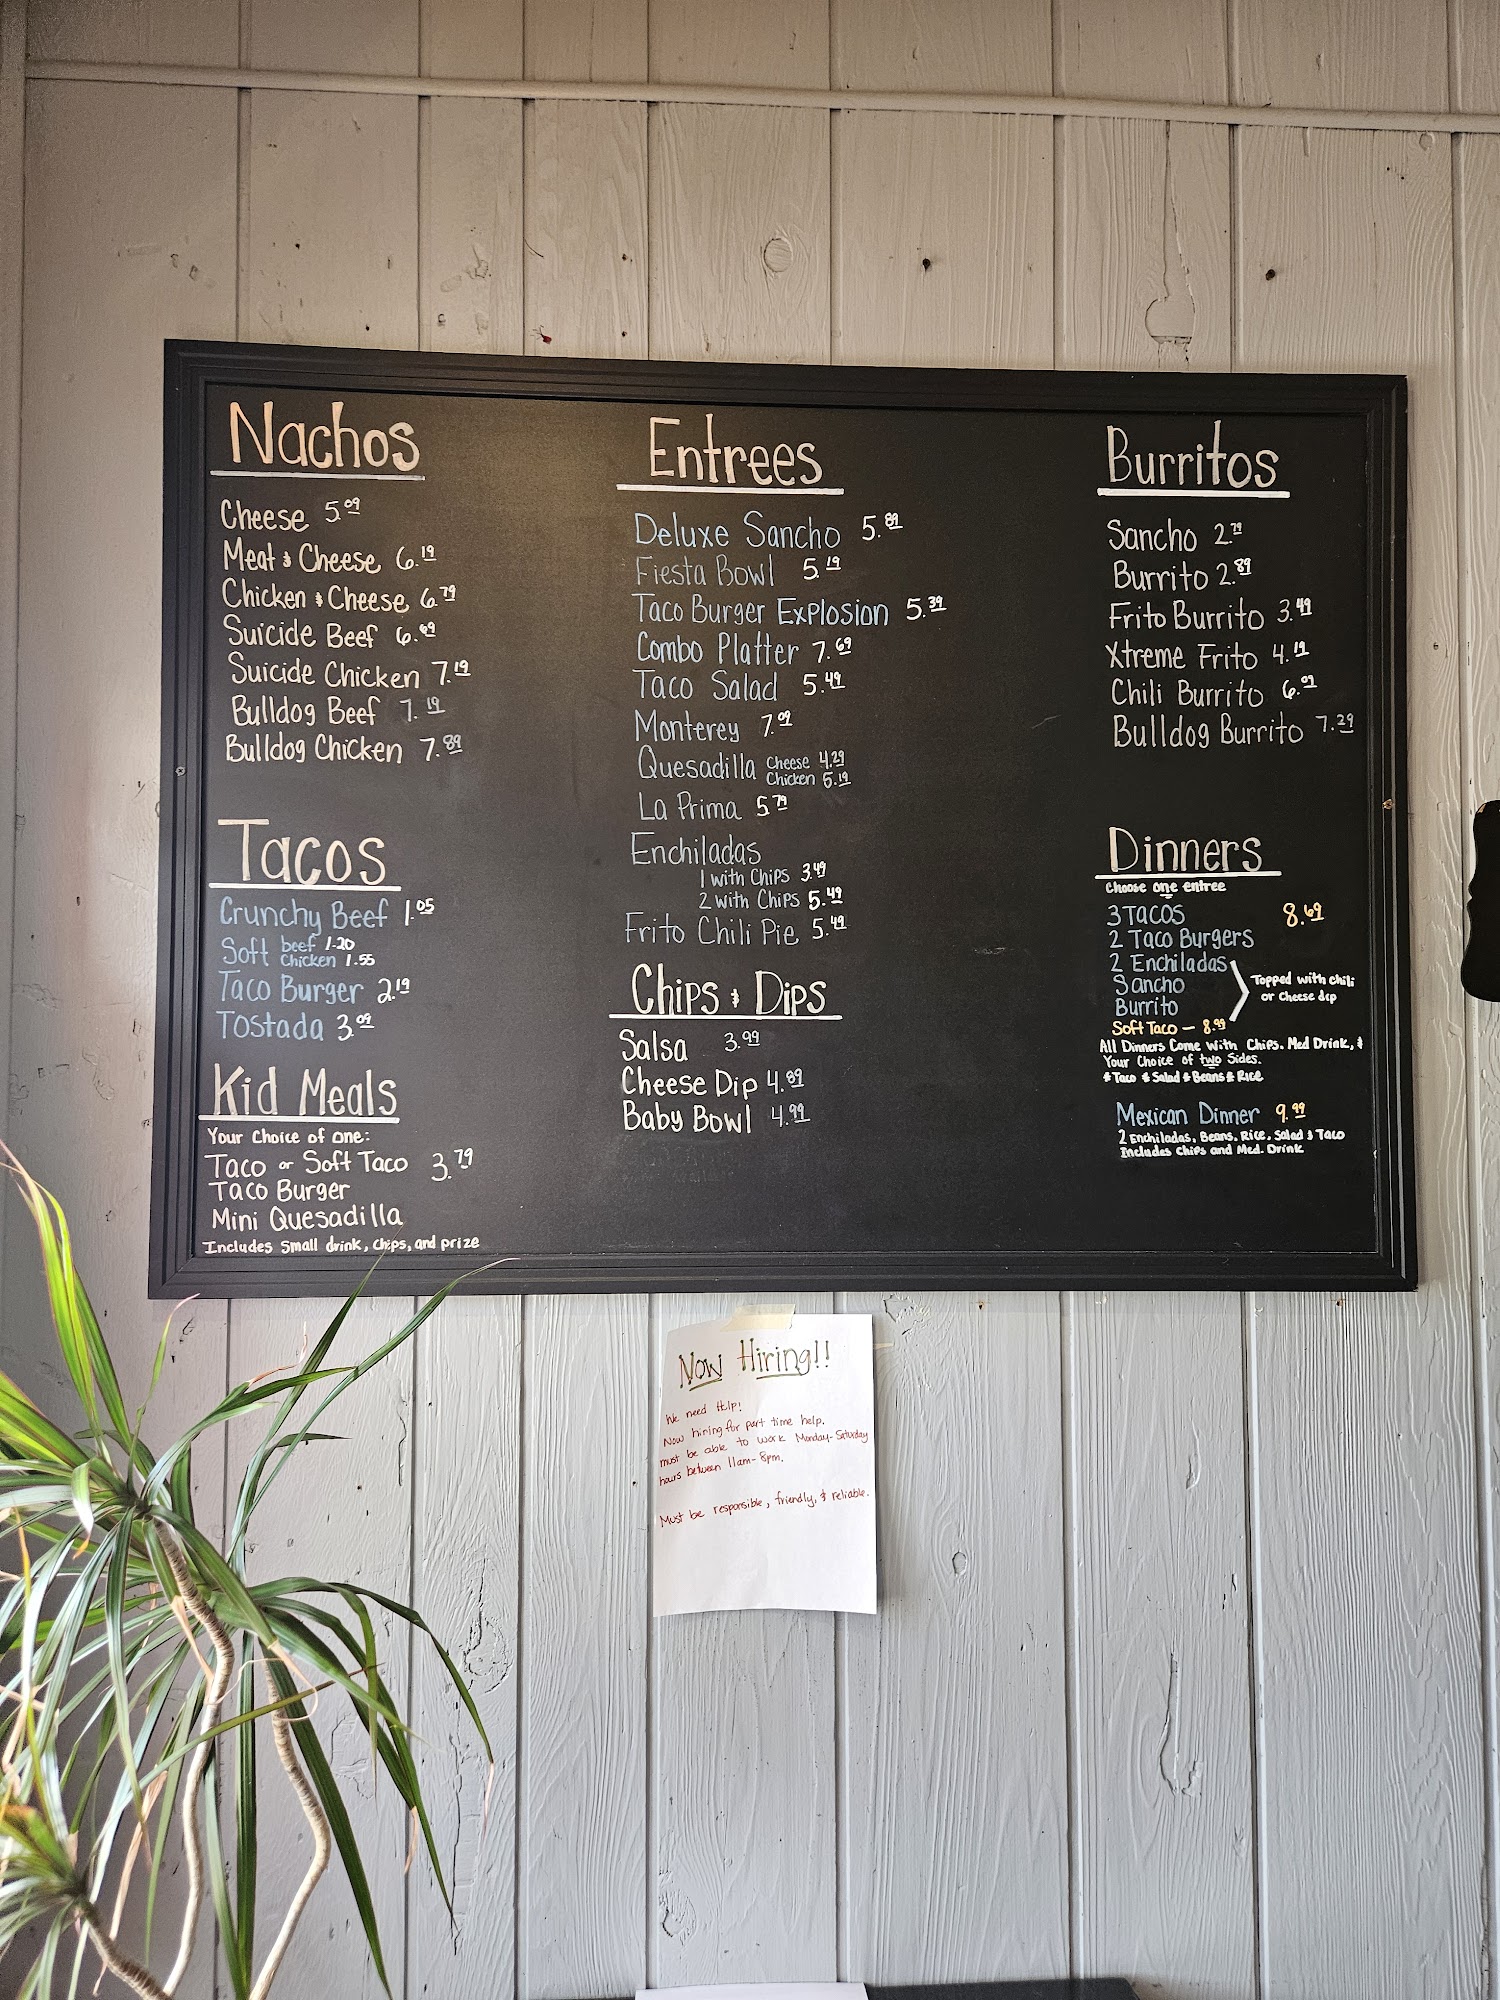 Nachos
Cheese 5.09
Meat & Cheese 6.19
Chicken & Cheese 6.79
Suicide Beef 6.69
Suicide Chicken 7.19
Bulldog Beef 7.19
Bulldog Chicken 7.89
Tacos
Crunchy Beef 1.05
Soft beef 1.20
Chicken 1.55
Taco Burger 2.19
Tostada 3.09
Kid Meals
Your choice of one:
Taco or Soft Taco 3.79
Taco Burger
Mini Quesadilla
Includes small drink, chips, and prize
Entrees
Deluxe Sancho 5.89
Fiesta Bowl 5.19
Taco Burger Explosion 5.39
Combo Platter 7.69
Taco Salad 5.49
Monterey 7.09
Quesadilla Cheese 4.29
Chicken 5.19
La Prima 5.79
Enchiladas
1 with Chips 3.49
2 with Chips 5.49
Frito Chili Pie 5.49
Chips & Dips
Salsa 3.99
Cheese Dip 4.89
Baby Bowl 4.99
Burritos
Sancho 2.79
Burrito 2.89
Frito Burrito 3.49
Xtreme Frito 4.19
Chili Burrito 6.09
Bulldog Burrito 7.29
Dinners
Choose one entree
3 Tacos 8.69
2 Taco Burgers
2 Enchiladas
Sancho
Burrito
Topped with chili
or cheese dip
Soft Taco — 8.99
All Dinners Come With Chips, Med Drink, &
Your Choice of two Sides.
* Taco * Salad * Beans * Rice
Mexican Dinner 9.99
2 Enchiladas, Beans, Rice, Salad & Taco
Includes Chips and Med. Drink
Now Hiring!!
We need Help!
Now hiring for part time help.
must be able to work Monday-Saturday
hours between 11am-8pm.
Must be responsible, friendly, & reliable.